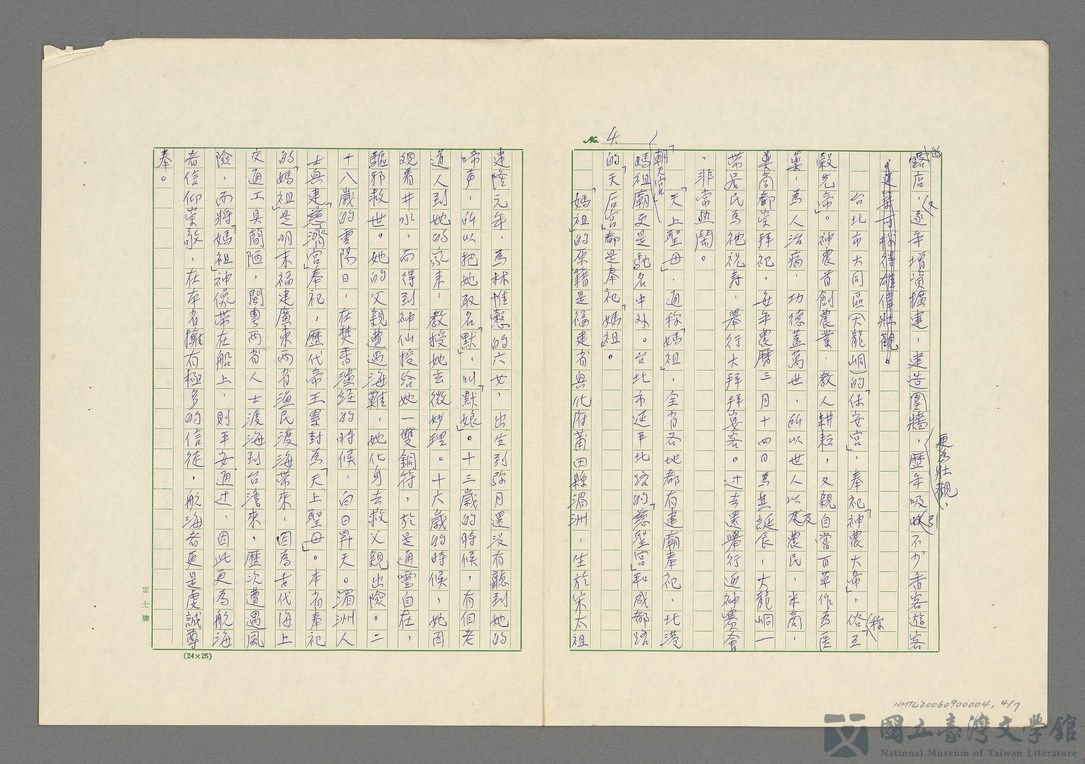 No. 4
露店,逐年增資擴建,建造圍牆,更為壯觀,歷年吸引不少香客遊客
建築可称得雄偉壯觀。
台北市大同區(大龍峒)的「保安宮」,奉祀「神農大帝」,俗称五
穀先帝。神農首創農業,教人耕耘,又親自嘗百草作為医
藥,為人治病,功德蓋萬世,所以世人以及農民,米商,
藥商都崇拜祀,每年農曆三月十四日為其誕辰,大龍峒一
帶居民為祂祝壽,舉行大拜拜宴客。过去還舉行迎神賽會
,非常熱鬧。
「天上聖母」,通称「媽祖」,全省各地都有建廟奉祀,北港
「朝天宮」媽祖廟更是馳名中外。台北市延平北路的「慈聖宮」和成都路
的「天后宮」都是奉祀「媽祖」。
「媽祖」的原籍是福建省興化府莆田縣湄洲,生於宋太祖
建隆元年,為林惟慤的六女,出生到弥月還没有聽到她的
啼声,所以把她取名「默」,叫「默娘」。十三歲的時候,有個老
道人到她的家來,教授她玄微妙理。十六歲的時候,她因
觀看井水,而得到神仙授給她一雙銅符,於是通靈自在,
驅邪救世。她的父親遭遇海難,她化身去救父親出險。二
十八歲的重陽日,在焚香演経的時候,白日昇天。湄洲人
士興建「慈濟宮」奉祀,歷代帝王累封為「天上聖母」。本省奉祀
的「媽祖」是明末福建廣東两省漁民渡海帶來,因為古代海上
交通工具簡陋,閩粵两省人士渡海到台湾來,歷次遭遇風
險,而將「媽祖」神像帶在船上,則平安通过,因此更為航海
者信仰崇敬,在本省擁有極多的信徒,航海者更是虔誠尊
奉。
富士牌
(24×25)
NMTL20060900004, 4/7
國立臺灣文學館
National Museum of Taiwan Literature